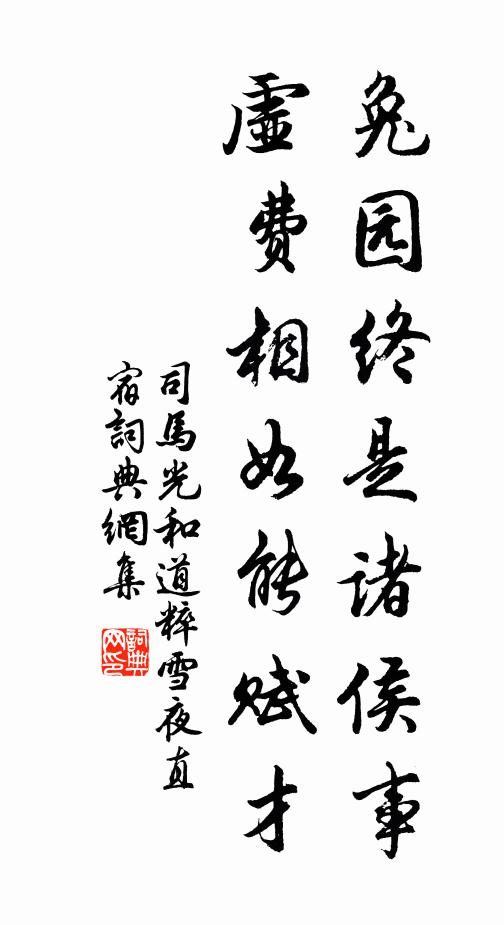 兔园终是诸侯事
虛費相如能赋才
司馬光和道粹雪夜直
宿詞典網集
詞典
网印